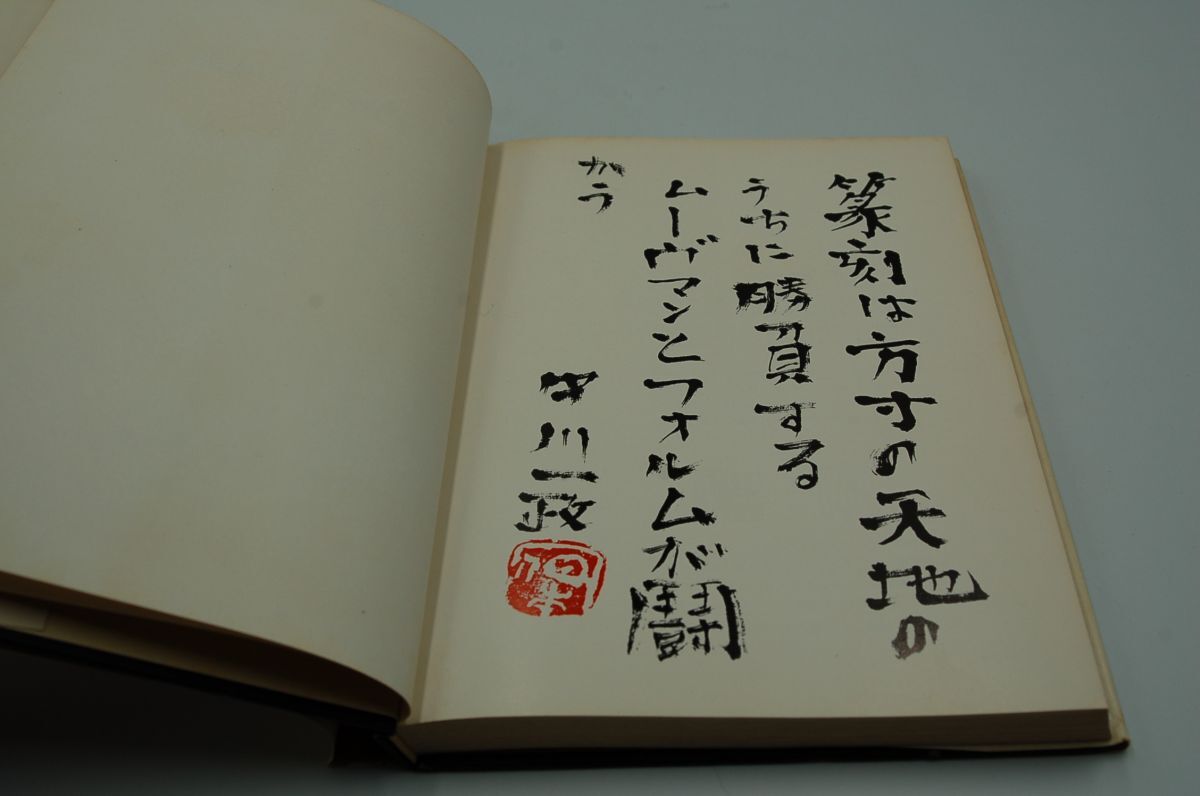 篆刻は方寸の天地の
うちに勝負する
ムーヴマンとフォルムが闘
かう
中川一政